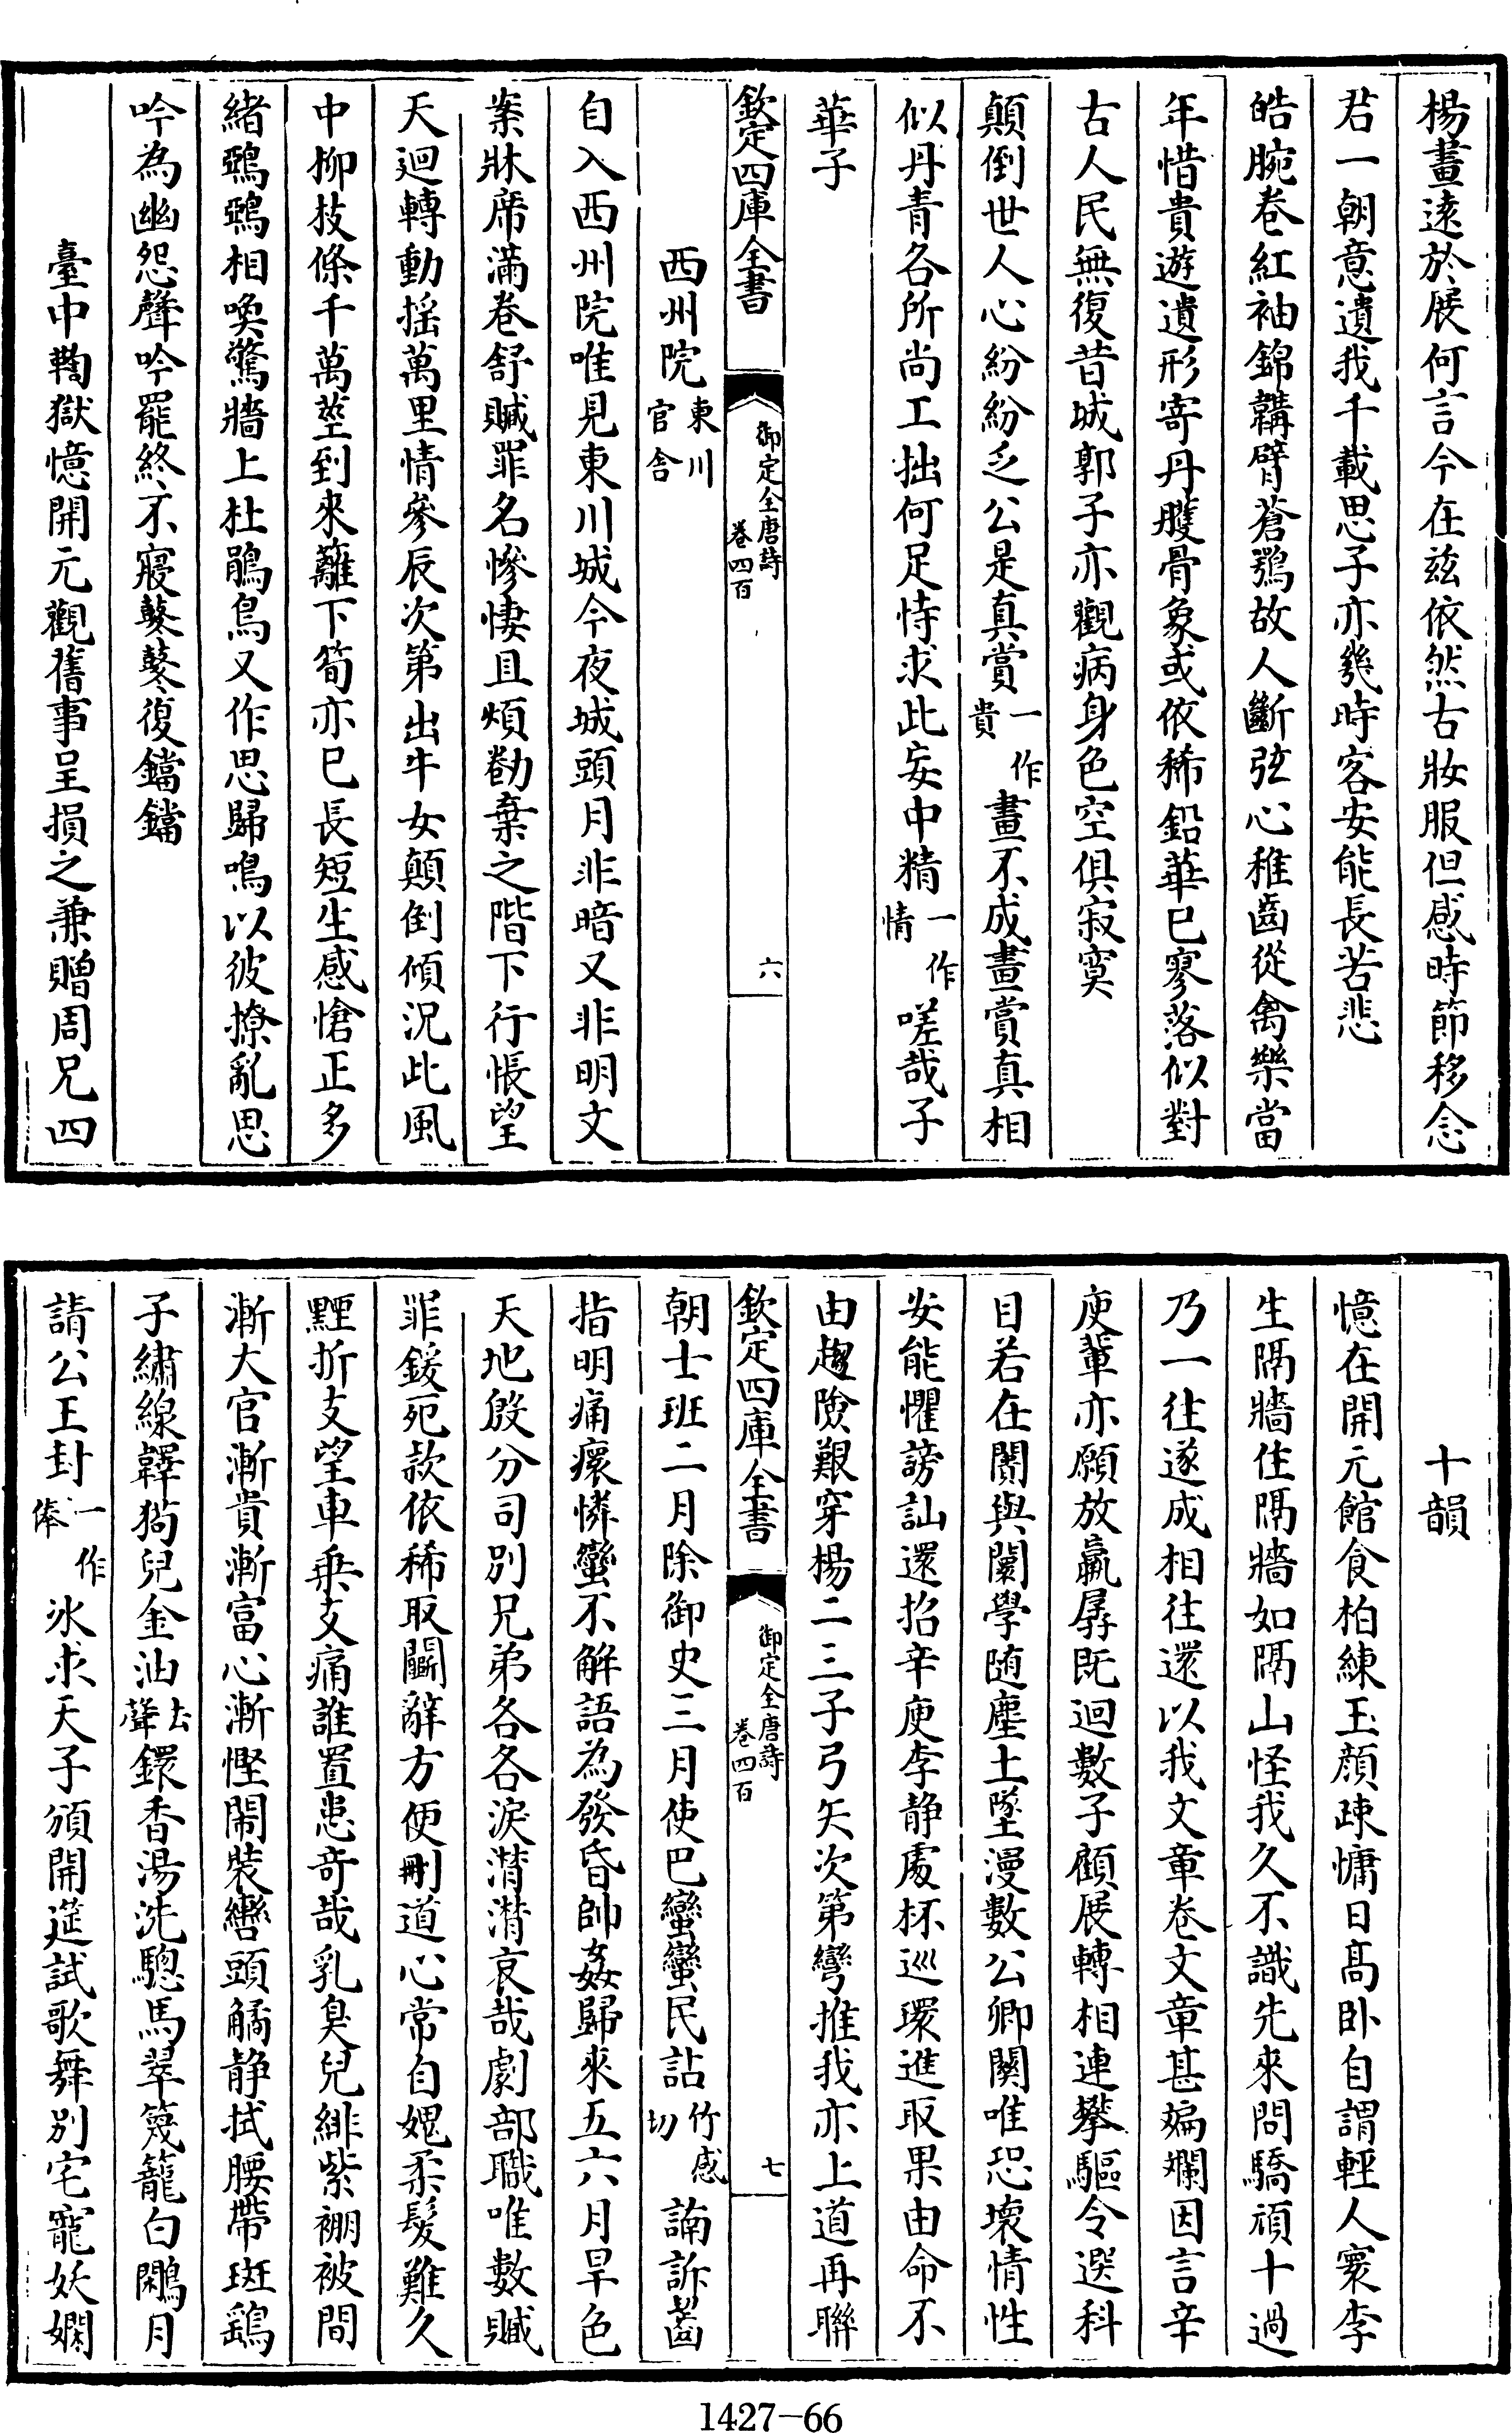 楊畫遠於展何言今在兹依然古妝服但感時節移念
君一朝意遺我千載思子亦幾時客安能長苦悲
皓腕卷紅袖錦韝臂蒼鶚故人斷弦心稚齒從禽樂當
年惜貴遊遺形寄丹雘骨象或依稀鉛華已寥落似對
古人民無復昔城郭子亦觀病身色空俱寂寞
顛倒世人心紛紛乏公是真賞一作貴畫不成畫賞真相
似丹青各所尚工拙何足恃求此妄中精一作情嗟哉子
華子
欽定四庫全書
御定全唐詩
卷四百
六
西州院東川官舍
自入西州院唯見東川城今夜城頭月非暗又非明文
案牀席滿卷舒贓罪名慘悽且煩勌棄之階下行悵望
天迴轉動揺萬里情參辰次第出牛女顛倒傾況此風
中柳枝條千萬莖到來蘺下筍亦已長短生感愴正多
緒鵶鵶相喚驚牆上杜鵑鳥又作思歸鳴以彼撩亂思
吟為幽怨聲吟罷終不寢鼕鼕復鐺鐺
臺中鞫獄憶開元觀舊事呈損之兼贈周兄四
十韻
憶在開元館食柏練玉顔疎慵日髙卧自謂輕人寰李
生隔牆住隔牆如隔山怪我久不識先來問驕頑十過
乃一往遂成相往還以我文章卷文章甚斒斕因言辛
庾輩亦願放羸孱既迴數子顧展轉相連攀驅令選科
目若在闤與闠學随塵土墜漫數公卿闗唯恐壞情性
安能懼謗訕還招辛庾李静處杯巡環進取果由命不
由趨險艱穿楊二三子弓矢次第彎推我亦上道再聯
欽定四庫全書
御定全唐詩
卷四百
七
朝士班二月除御史三月使巴蠻蠻民詀竹感切諵訴齧
指明痛瘝憐蠻不解語為發昏帥姦歸來五六月旱色
天地殷分司別兄弟各各淚潸潸哀哉劇部職唯數贓
罪鍰死款依稀取鬭辭方便刪道心常自媿柔髮難久
黫折支望車乗支痛誰置患奇哉乳臭兒緋紫褟被間
漸大官漸貴漸富心漸慳閙裝轡頭觼静拭腰帶斑鷂
子繡線韝狗兒金油去聲鐶香湯洗驄馬翠篾籠白鷴月
請公王封一作俸氷求天子頒開筵試歌舞別宅寵妖嫻